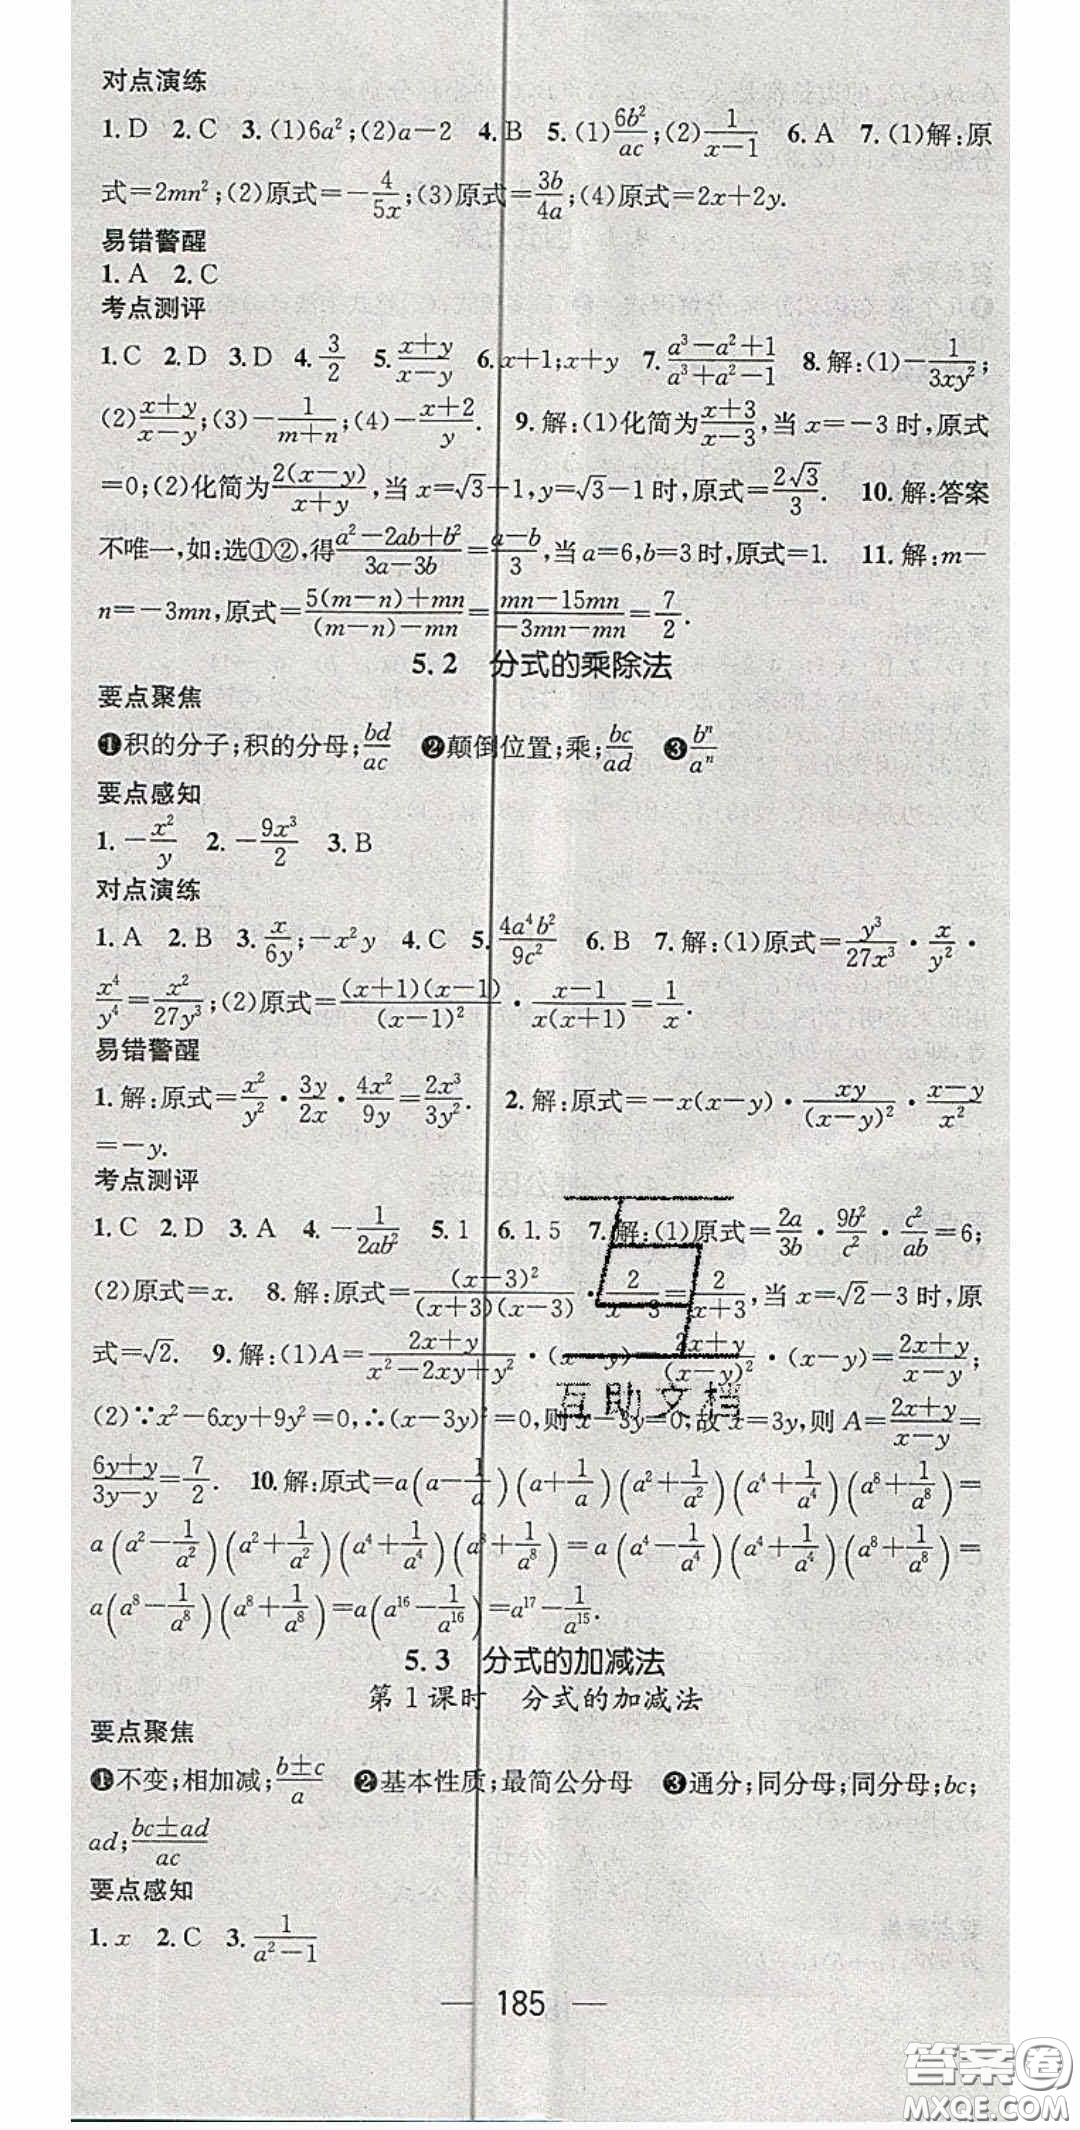 对点演练
1.D 2.C 3.(1)6a²;(2)a-2 4.B 5.(1)6b²/ac;(2)1/(x-1) 6.A 7.(1)解:原
式=2mn²;(2)原式=-4/5x;(3)原式=3b/4a;(4)原式=2x+2y.
易错警醒
1.A 2.C
考点测评
1.C 2.D 3.D 4.3/2 5.(x+y)/(x-y) 6.x+1;x+y 7.(a³-a²+1)/(a³+a²-1) 8.解:(1)-1/3xy²;
(2)(x+y)/(x-y);(3)-1/(m+n);(4)-(x+2)/y. 9.解:(1)化简为(x+3)/(x-3),当x=-3时,原式
=0;(2)化简为2(x-y)/(x+y),当x=√3+1,y=√3-1时,原式=2√3/3. 10.解:答案
不唯一,如:选①②,得(a²-2ab+b²)/(3a-3b)=(a-b)/3,当a=6,b=3时,原式=1. 11.解:m-
n=-3mn,原式=(5(m-n)+mn)/((m-n)-mn)=(mn-15mn)/(-3mn-mn)=7/2.
5.2 分式的乘除法
要点聚焦
❶积的分子;积的分母;bd/ac ❷颠倒位置;乘;bc/ad ❸bⁿ/aⁿ
要点感知
1.-x²/y 2.-9x³/2 3.B
对点演练
1.A 2.B 3.x/6y;-x²y 4.C 5.4a⁴b²/9c² 6.B 7.解:(1)原式=y³/27x³·x/y²·
x⁴/y⁴=x²/27y³;(2)原式=(x+1)(x-1)/(x-1)²·(x-1)/x(x+1)=1/x.
易错警醒
1.解:原式=x²/y²·3y/2x·4x²/9y=2x³/3y². 2.解:原式=-x(x-y)·xy/(x-y)²·(x-y)/x²
=-y.
考点测评
1.C 2.D 3.A 4.-1/2ab² 5.1 6.1.5 7.解:(1)原式=2a/3b·9b²/c²·c²/ab=6;
(2)原式=x. 8.解:原式=(x-3)²/(x+3)(x-3)·2/(x-3)=2/(x+3),当x=√2-3时,原
式=√2. 9.解:(1)A=(2x+y)/(x²-2xy+y²)·(x-y)=(2x+y)/(x-y)²·(x-y)=(2x+y)/(x-y);
(2)∵x²-6xy+9y²=0,∴(x-3y)²=0,则x-3y=0,故x=3y,则A=(2x+y)/(x-y)=
互助文档
(6y+y)/(3y-y)=7/2. 10.解:原式=a(a-1/a)(a+1/a)(a²+1/a²)(a⁴+1/a⁴)(a⁸+1/a⁸)=
a(a²-1/a²)(a²+1/a²)(a⁴+1/a⁴)(a⁸+1/a⁸)=a(a⁴-1/a⁴)(a⁴+1/a⁴)(a⁸+1/a⁸)=
a(a⁸-1/a⁸)(a⁸+1/a⁸)=a(a¹⁶-1/a¹⁶)=a¹⁷-1/a¹⁵.
5.3 分式的加减法
第1课时 分式的加减法
要点聚焦
❶不变;相加减;(b±c)/a ❷基本性质;最简公分母 ❸通分;同分母;同分母;bc;
ad;(bc±ad)/ac
要点感知
1.x 2.C 3.1/(a²-1)
— 185 —
答案圈
MXQE.COM